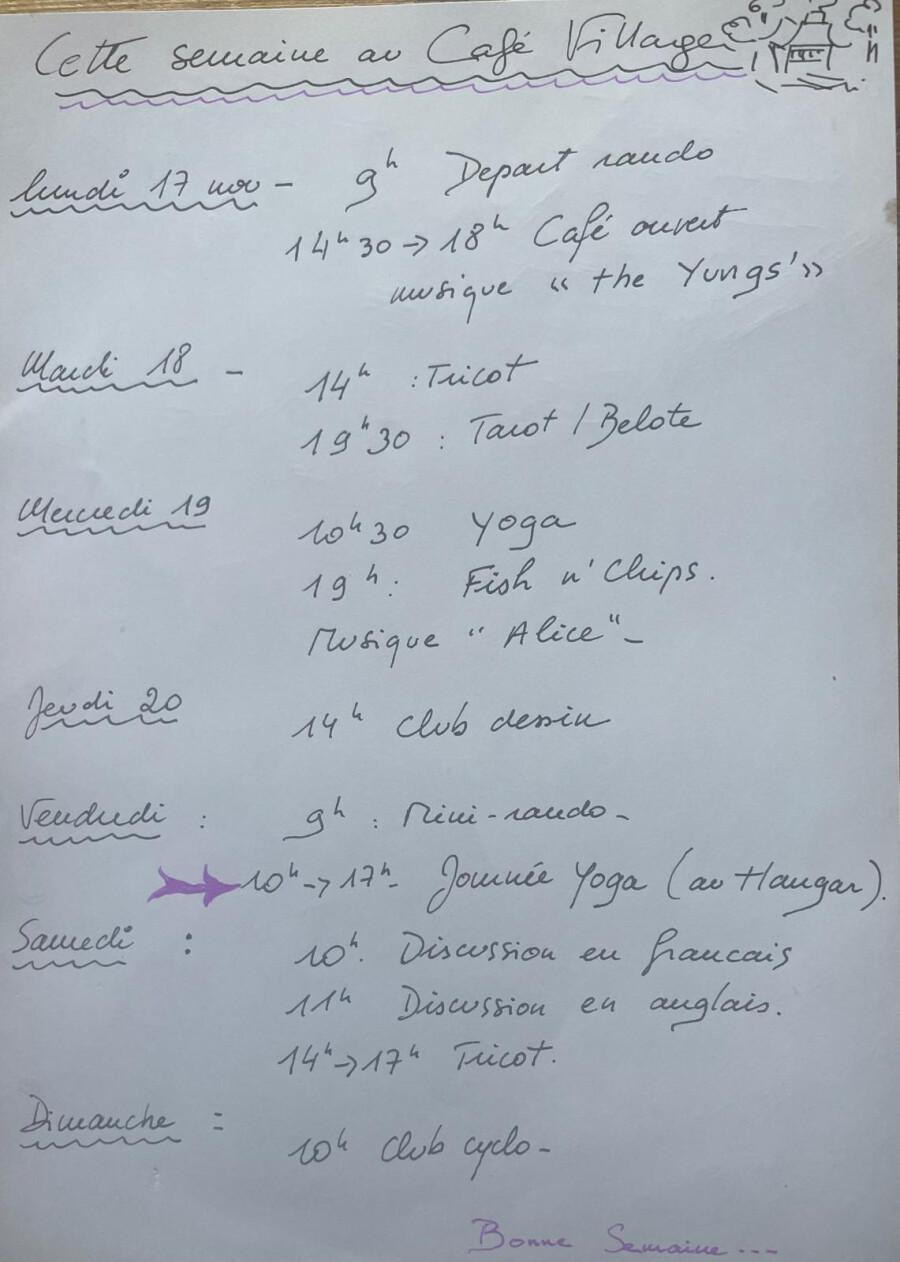 Cette semaine au Café Village
lundi 17 nov - 9h Depart rando
14h30 -> 18h Café ouvert
musique « the Yungs' »
Mardi 18 - 14h : Tricot
19h30 : Tarot / Belote
Mercredi 19 10h30 Yoga
19h : Fish n' Chips.
Musique " Alice " -
Jeudi 20 14h Club dessin
Vendredi : 9h : Mini-rando -
10h -> 17h - Journée Yoga (au Hangar).
Samedi : 10h. Discussion en francais
11h Discussion en anglais.
14h -> 17h Tricot.
Dimanche :
10h Club cyclo -
Bonne Semaine ---